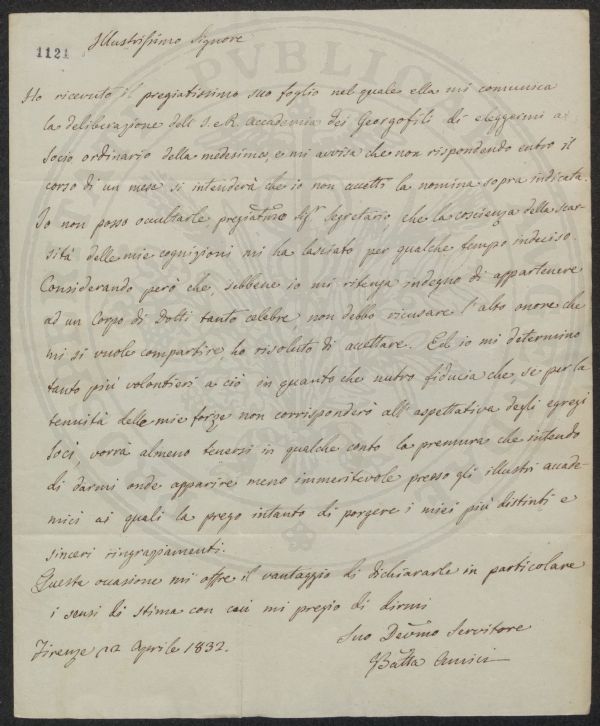 1121
Illustrissimo Signore
Ho ricevuto il pregiatissimo suo foglio nel quale ella mi comunica
la deliberazione dell' I. e R. Accademia dei Georgofili di eleggermi a
Socio ordinario della medesima, e mi avvisa che non rispondendo entro il
corso di un mese si intenderà che io non accetti la nomina sopra indicata.
Io non posso occultarle, pregiatmo Sigr Segretario che la coscienza della scar-
sità delle mie cognizioni mi ha lasciato per qualche tempo indeciso.
Considerando però che, sebbene io mi ritenga indegno di appartenere
ad un Corpo di Dotti tanto celebre non debbo ricusare l'alto onore che
mi si vuole compartire, ho risoluto di accettare. Ed io mi determino
tanto più volontieri a ciò in quanto che nutro fiducia che, se per la
tenuità delle mie forze non corrisponderò all' aspettativa degli egregi
Socj, vorrà almeno tenersi in qualche conto la premura che intendo
di darmi onde apparire meno immeritevole presso gli illustri accade-
mici ai quali la prego intanto di porgere i miei più distinti e
sinceri ringraziamenti.
Questa occasione mi offre il vantaggio di dichiararle in particolare
i sensi di stima con cui mi pregio di dirmi
Suo Devmo Servitore
Firenze 12 Aprile 1832.
GBatta Amici